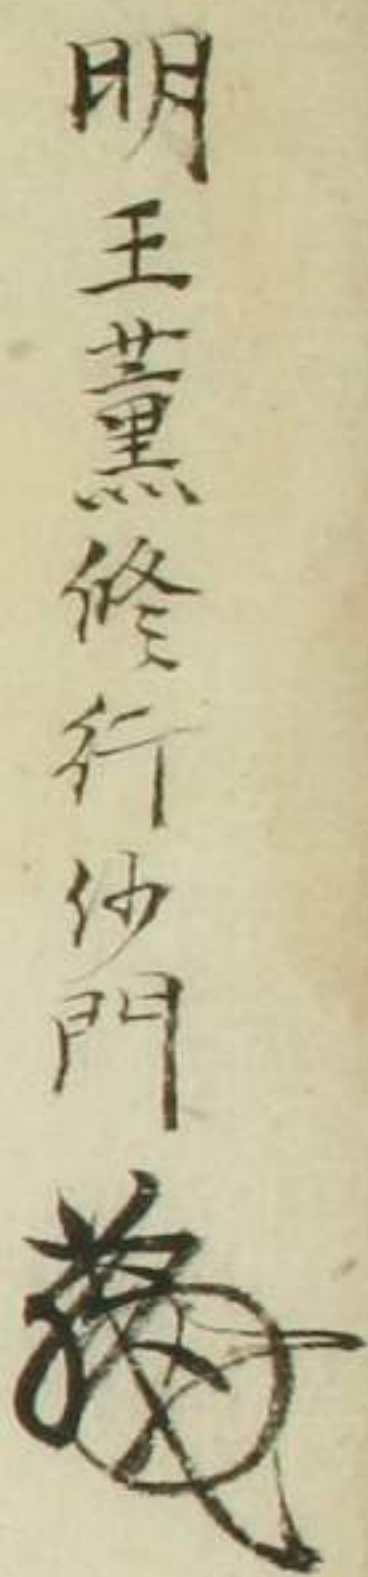 明王薫修行沙門